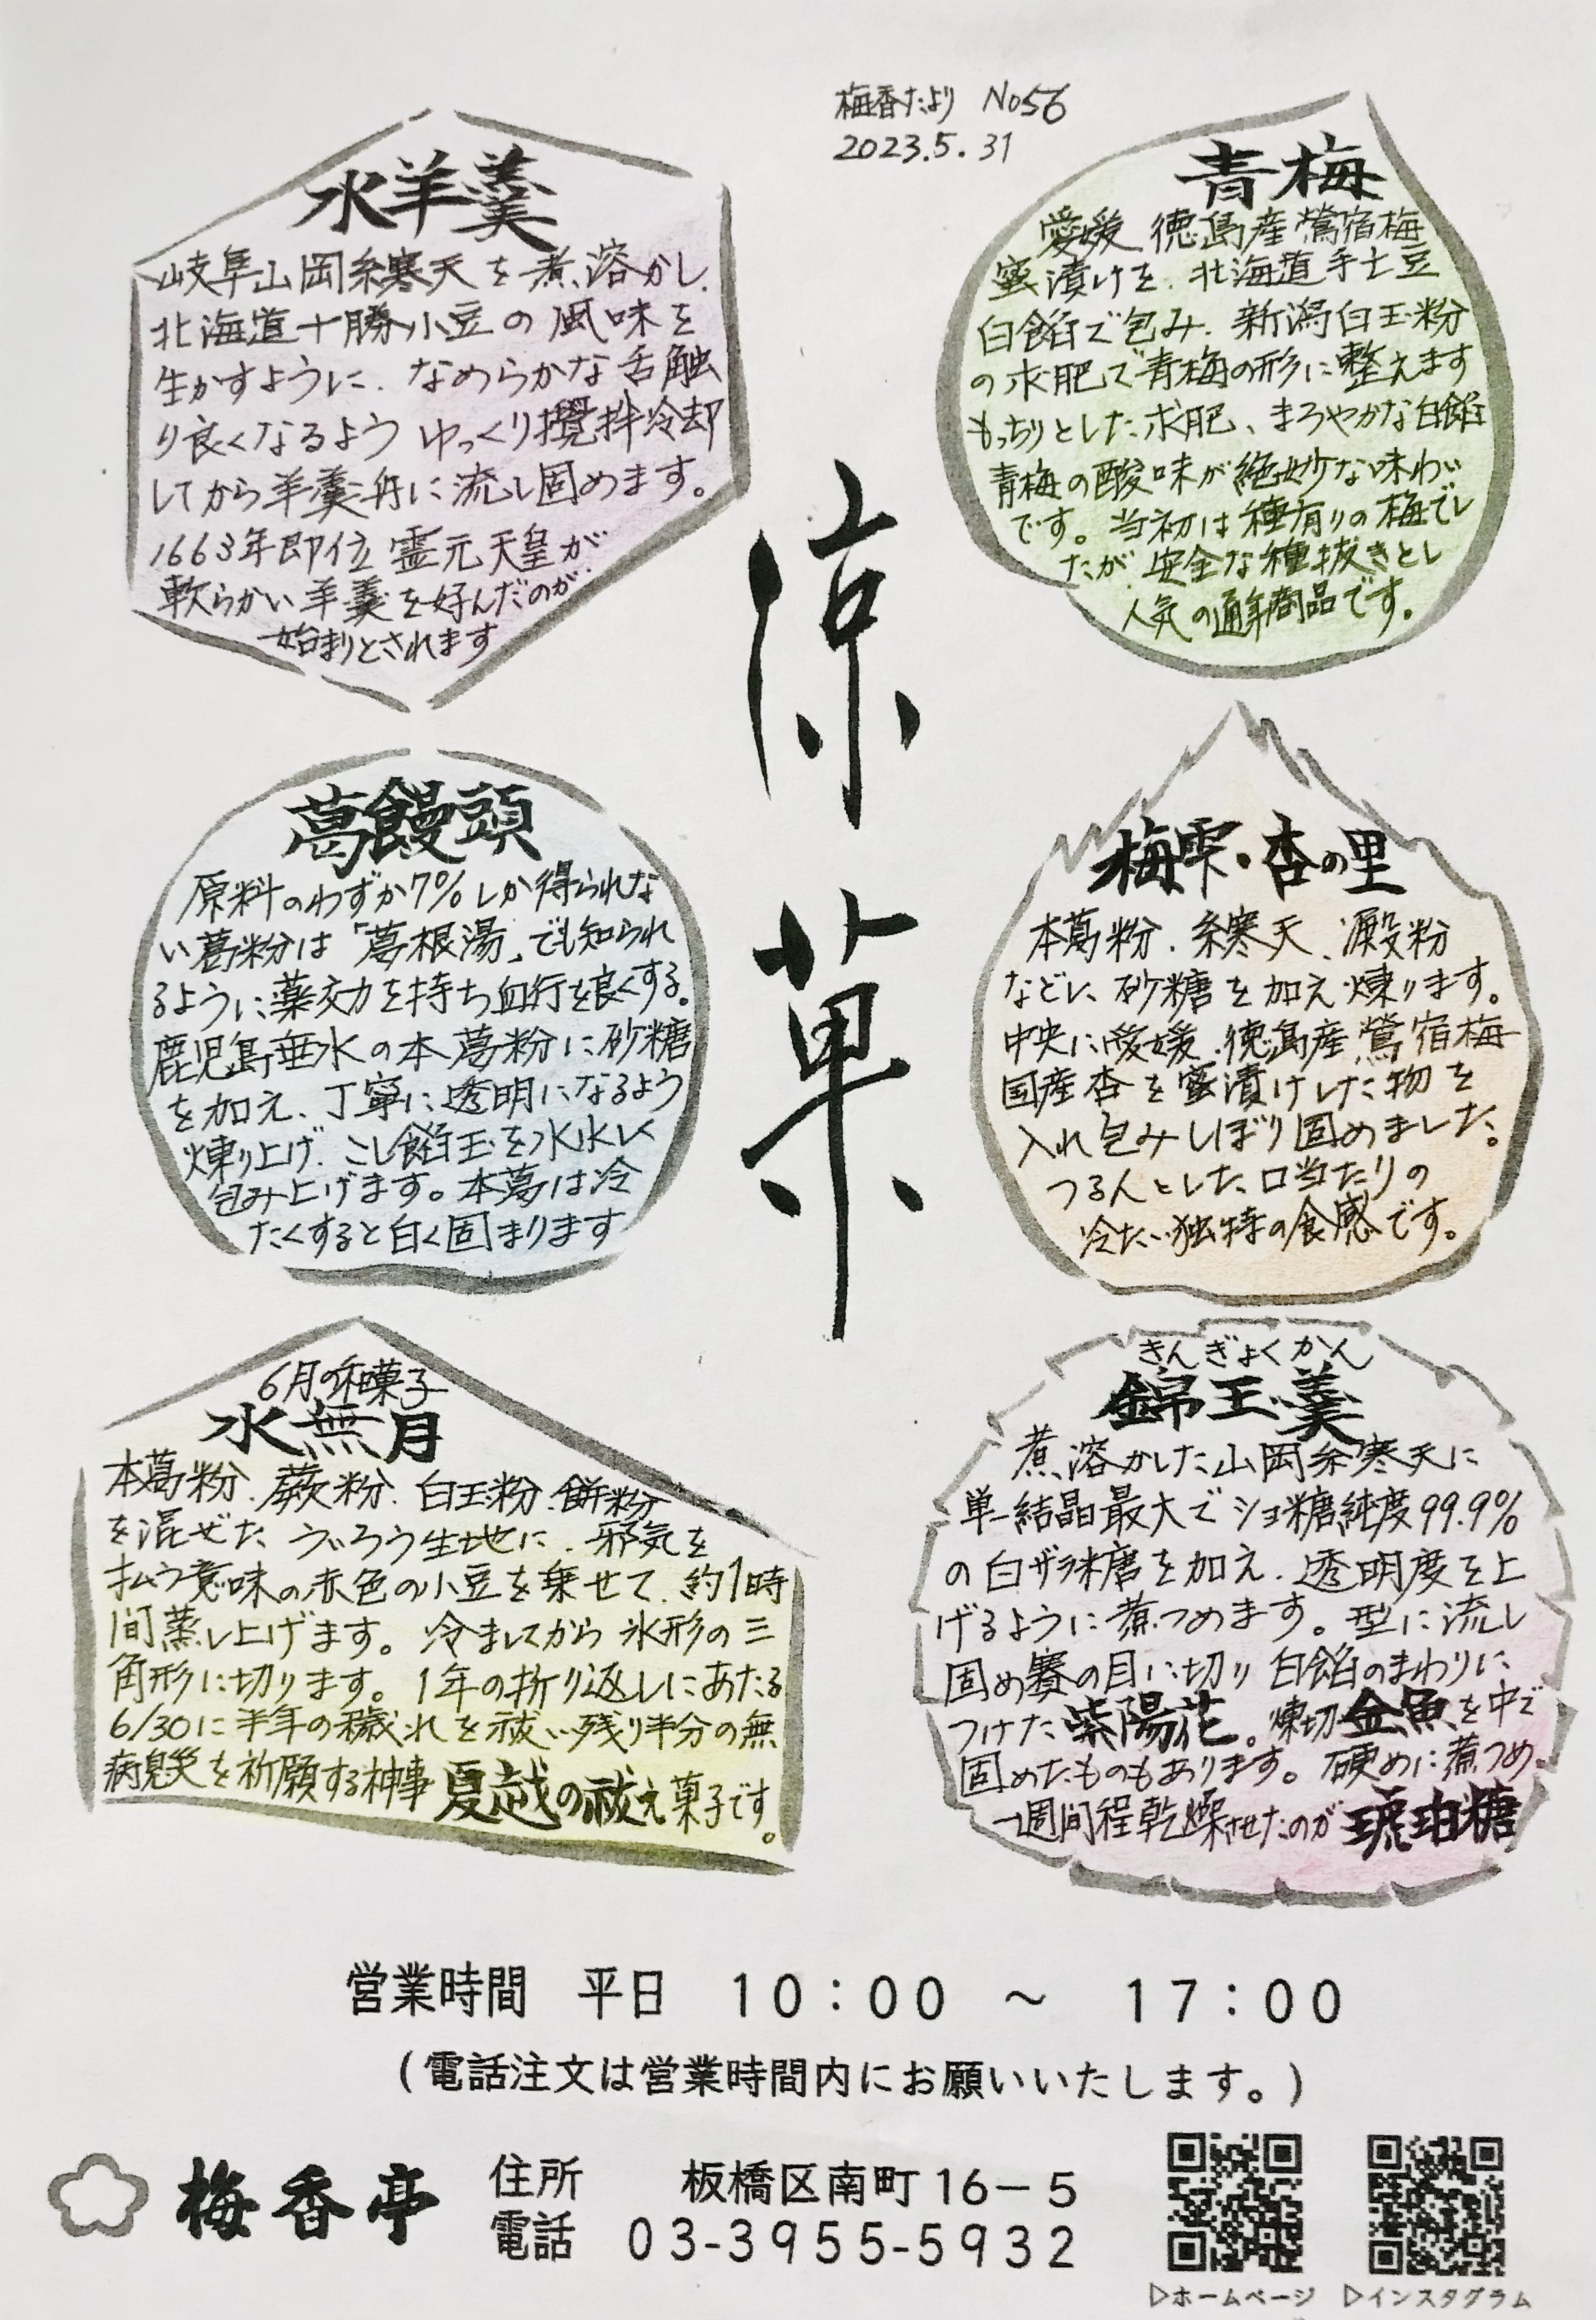 梅香だより No56
2023.5.31
涼菓
青梅
愛媛 徳島産鶯宿梅
蜜漬けを、北海道手亡豆
白餡で包み、新潟白玉粉
の求肥で青梅の形に整えます
もっちりとした求肥、まろやかな白餡
青梅の酸味が絶妙な味わい
です。当初は種有りの梅でし
たが、安全な種抜きとし
人気の通年商品です。
水羊羹
岐阜山岡糸寒天を煮溶かし、
北海道十勝小豆の風味を
生かすように、なめらかな舌触
り良くなるよう ゆっくり攪拌冷却
してから羊羹舟に流し固めます。
1663年即位 霊元天皇が
軟らかい羊羹を好んだのが
始まりとされます
梅雫・杏の里
本葛粉、糸寒天、澱粉
などに、砂糖を加え煉ります。
中央に愛媛、徳島産鶯宿梅
国産杏を蜜漬けした物を
入れ包みしぼり固めました。
つるんとした口当たりの
冷たい独特の食感です。
葛饅頭
原料のわずか7%しか得られな
い葛粉は「葛根湯」でも知られ
るように薬効力を持ち血行を良くする。
鹿児島垂水の本葛粉に砂糖
を加え、丁寧に透明になるよう
煉り上げ、こし餡玉を水水しく
包み上げます。本葛は冷
たくすると白く固まります
きんぎょくかん
錦玉羹
煮溶かした山岡糸寒天に
単一結晶最大でショ糖純度99.9%
の白ザラ糖を加え、透明度を上
げるように煮つめます。型に流し
固め賽の目に切り 白餡のまわりに
つけた紫陽花。煉切金魚を中で
固めたものもあります。硬めに煮つめ、
一週間程乾燥させたのが琥珀糖
6月の和菓子
水無月
本葛粉、蕨粉、白玉粉、餅粉
を混ぜた ういろう生地に、邪気を
払う意味の赤色の小豆を乗せて、約1時
間蒸し上げます。冷ましてから 氷形の三
角形に切ります。1年の折り返しにあたる
6/30に半年の穢れを祓い残り半分の無
病息災を祈願する神事 夏越の祓え菓子です。
営業時間 平日 10：00 ～ 17：00
(電話注文は営業時間内にお願いいたします。)
梅香亭
住所 板橋区南町16－5
電話 03-3955-5932
▷ホームページ ▷インスタグラム